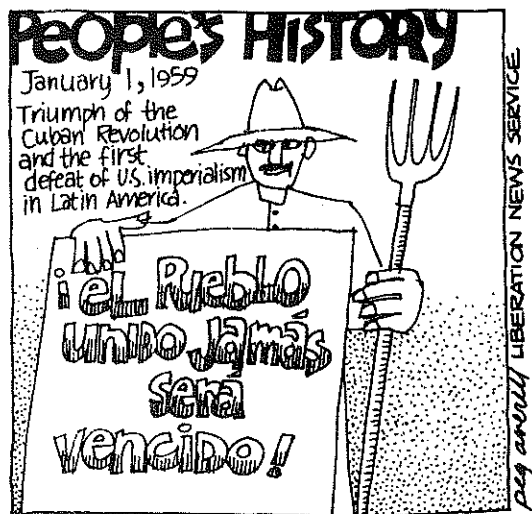 PEOPLE'S HISTORY
January 1, 1959
Triumph of the
Cuban Revolution
and the first
defeat of U.S. imperialism
in Latin America.
¡EL PUEBLO
UNIDO JAMÁS
SERÁ
VENCIDO!
peg averill LIBERATION NEWS SERVICE